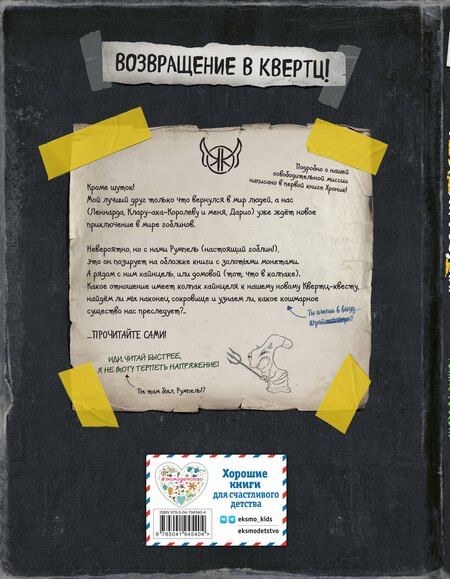 ВОЗВРАЩЕНИЕ В КВЕРТЦ!
Подробно о нашей
освободительной миссии
написано в первой книге Хроник!
Кроме шуток!
Мой лучший друг только что вернулся в мир людей, а нас
(Леннарда, Клару-ака-Королеву и меня, Дарио) уже ждёт новое
приключение в мире гоблинов.
Невероятно, но с нами Румпель (настоящий гоблин!),
Это он позирует на обложке книги с золотыми монетами.
А рядом с ним хайнцель, или домовой (тот, что в колпаке).
Какое отношение имеет колпак хайнцеля к нашему новому Квертц-квесту,
найдём ли мы наконец сокровище и узнаем ли, какое кошмарное
существо нас преследует?..
Ты имеешь в виду...
...ПРОЧИТАЙТЕ САМИ!
ИДИ, ЧИТАЙ БЫСТРЕЕ,
Я НЕ МОГУ ТЕРПЕТЬ НАПРЯЖЕНИЕ!
Ты там был, Румпель!?
#эксмодетство
Хорошие
книги
для счастливого
детства
ISBN 978-5-04-194540-4
9 785041 945404 >
eksmo_kids
eksmodetstvo